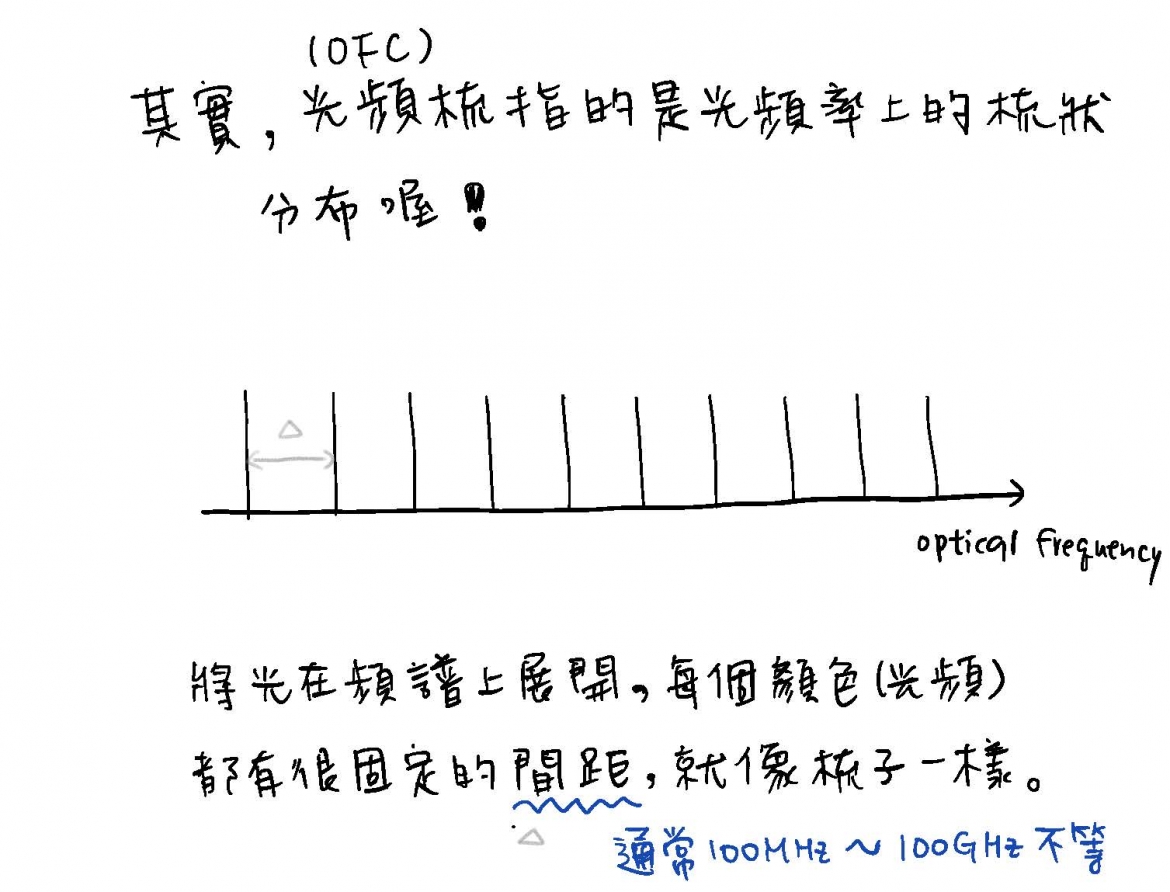 (OFC)
其實，光頻梳指的是光頻率上的梳狀
分布喔！
△
optical frequency
將光在頻譜上展開，每個顏色(光頻)
都有很固定的間距，就像梳子一樣。
△
通常100MHz～100GHz不等